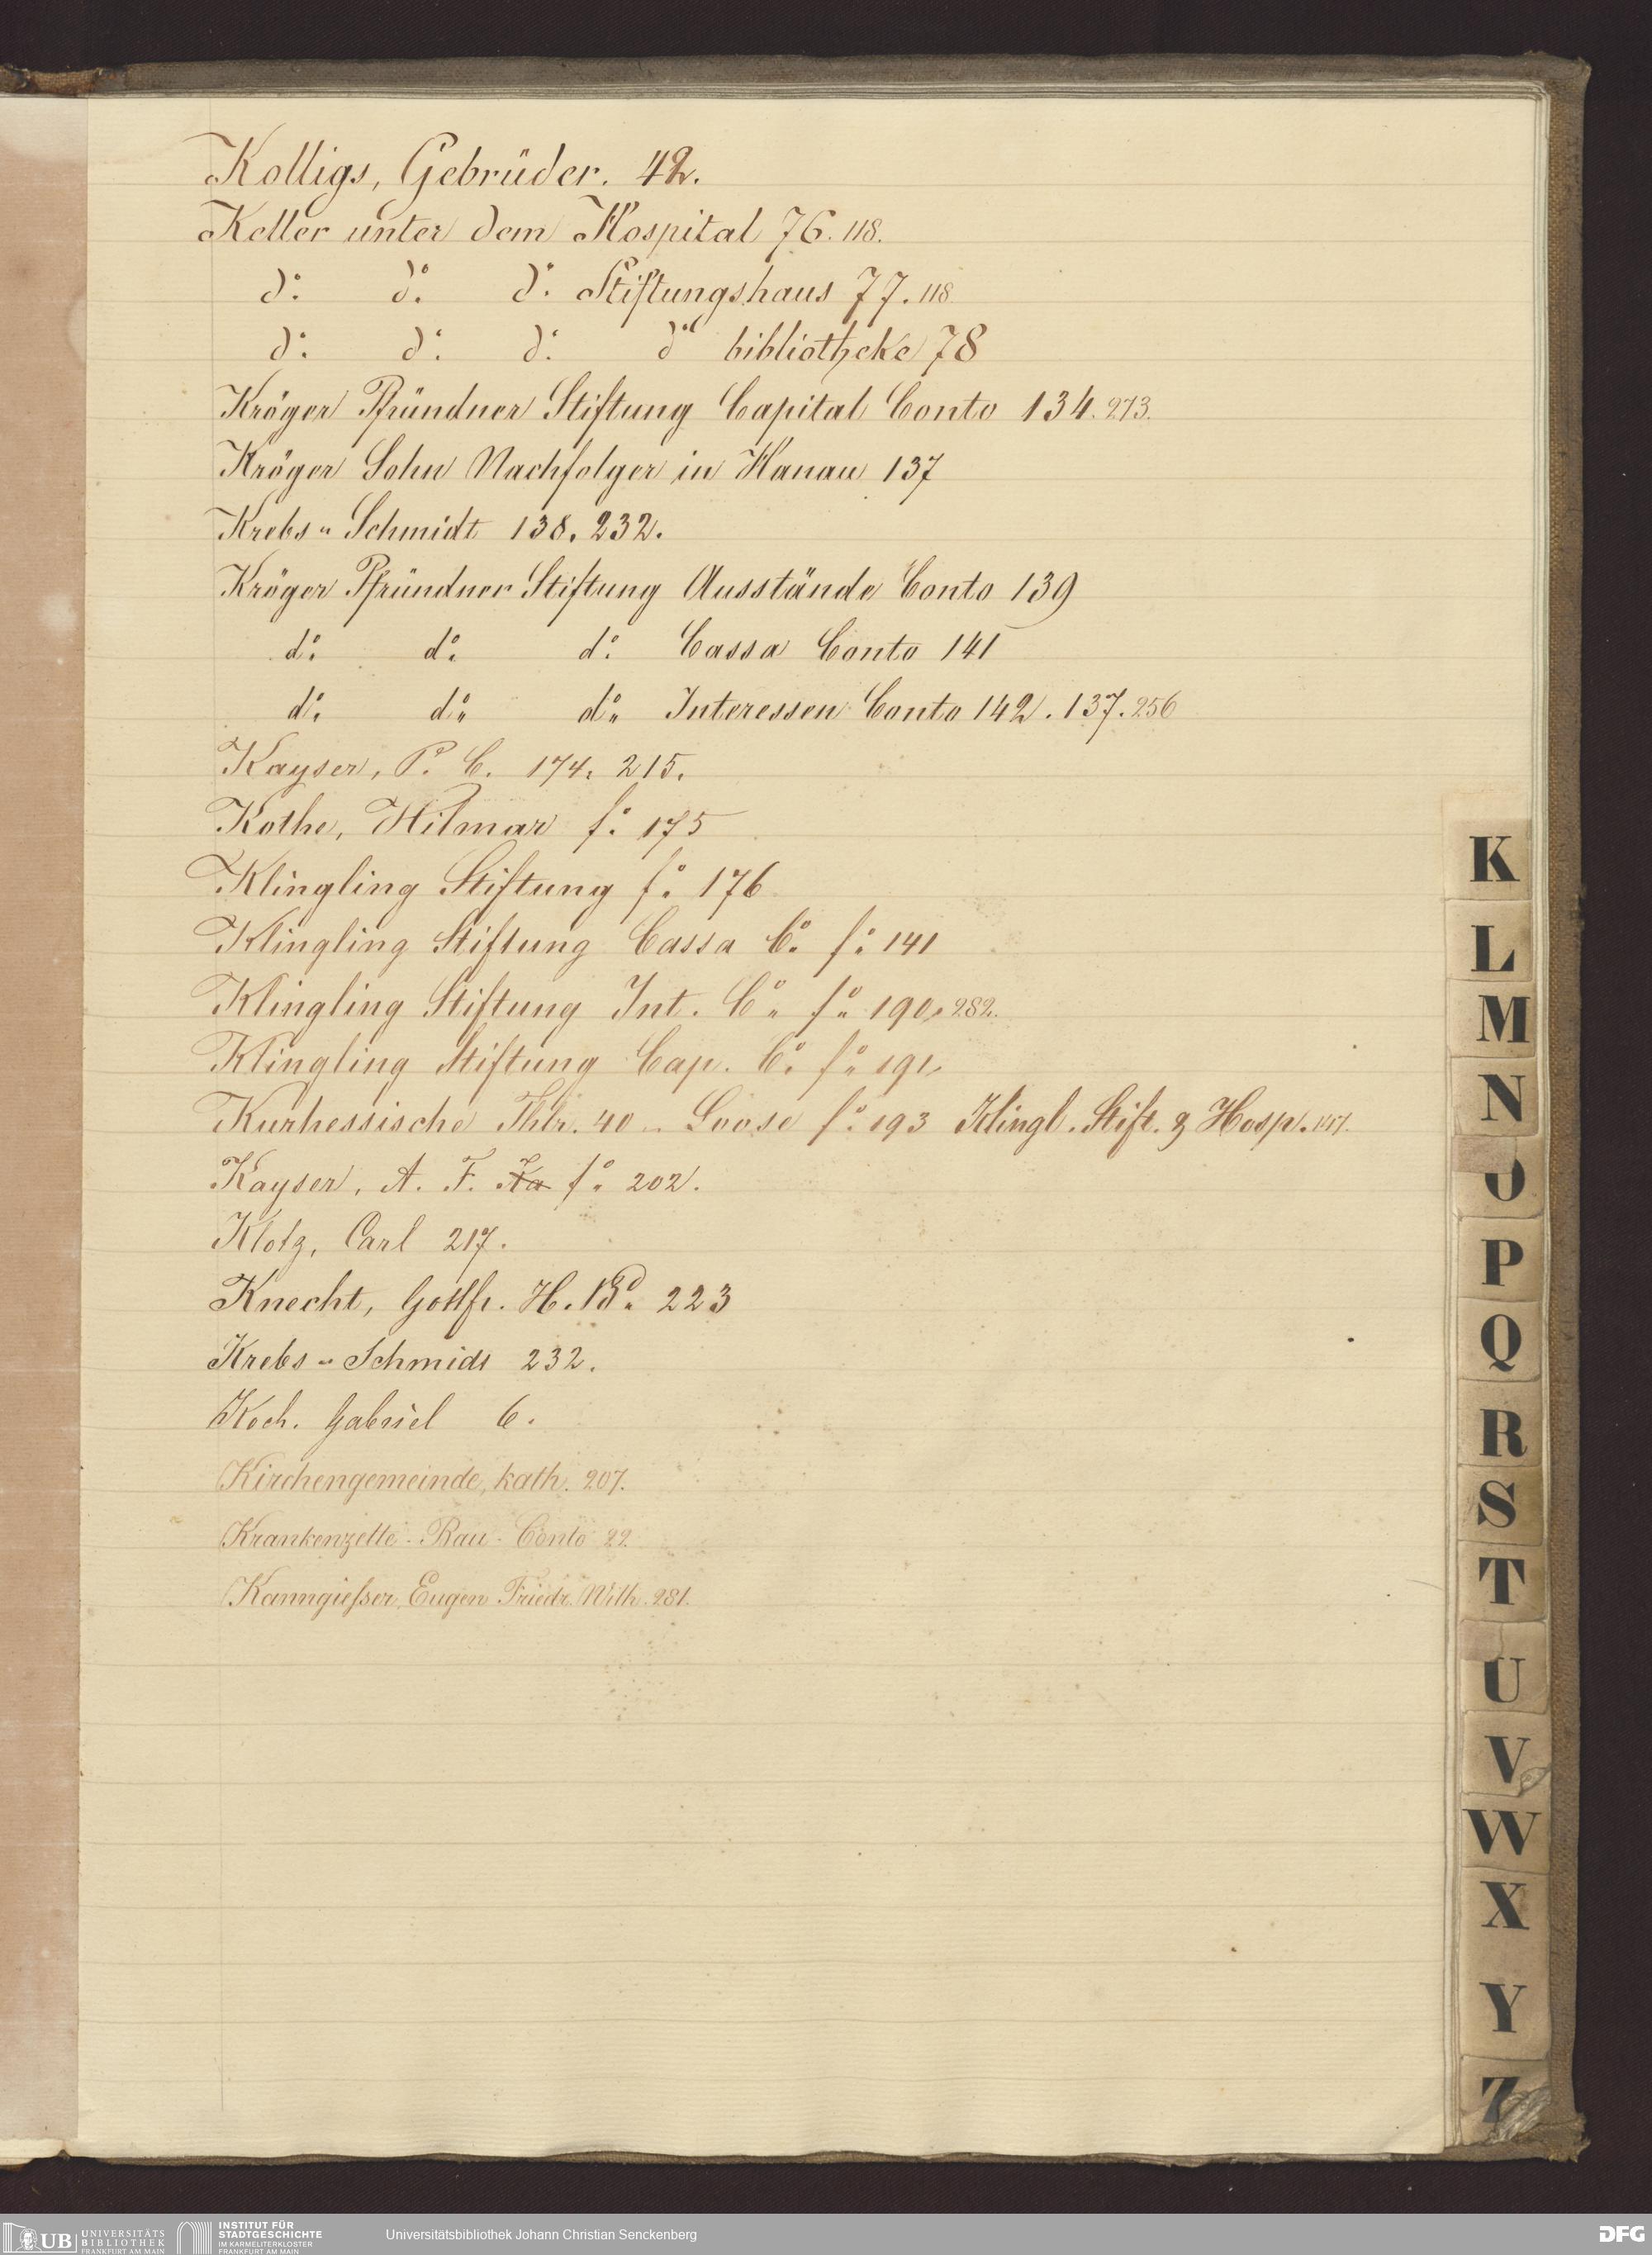 Kolligs, Gebrüder. 42.
Keller unter dem Hospital 76. 118.
do. do. do. Stiftungshaus 77. 118
do. do. do. do. bibliotheke 78
Kröger Pfründner Stiftung Capital Conto 134. 273.
Kröger Sohn Nachfolger in Hanau 137
Krebs-Schmidt 138. 232.
Kröger Pfründner Stiftung Ausstände Conto 139
do. do. do. Cassa Conto 141
do. do. do. Interessen Conto 142. 137. 256
Kayser, P. C. 174. 215.
Kothe, Hilmar fo. 175
Klingling Stiftung fo. 176
Klingling Stiftung Cassa Co. fo. 141
Klingling Stiftung Int. Co. fo. 190. 282.
Klingling Stiftung Cap. Co. fo. 191.
Kurhessische Thlr. 40 - Loose fo. 193 Klingl. Stift. & Hosp.
Kayser, A. F. Ka fo. 202.
Klotz, Carl 217.
Knecht, Gottfr. H. 223
Krebs-Schmidt 232.
Koch. Gabriel 6.
Kirchengemeinde, kath. 207.
Krankenzelte-Bau-Conto 22.
Kanngießer, Eugen Friedr. Wilh. 281.
K
L
M
N
O
P
Q
R
S
T
U
V
W
X
Y
Z
UB UNIVERSITÄTS
BIBLIOTHEK
FRANKFURT AM MAIN
INSTITUT FÜR
STADTGESCHICHTE
IM KARMELITERKLOSTER
FRANKFURT AM MAIN
Universitätsbibliothek Johann Christian Senckenberg
DFG